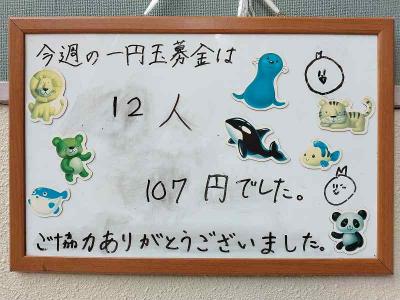 今週の一円玉募金は
12人
107円でした。
ご協力ありがとうございました。